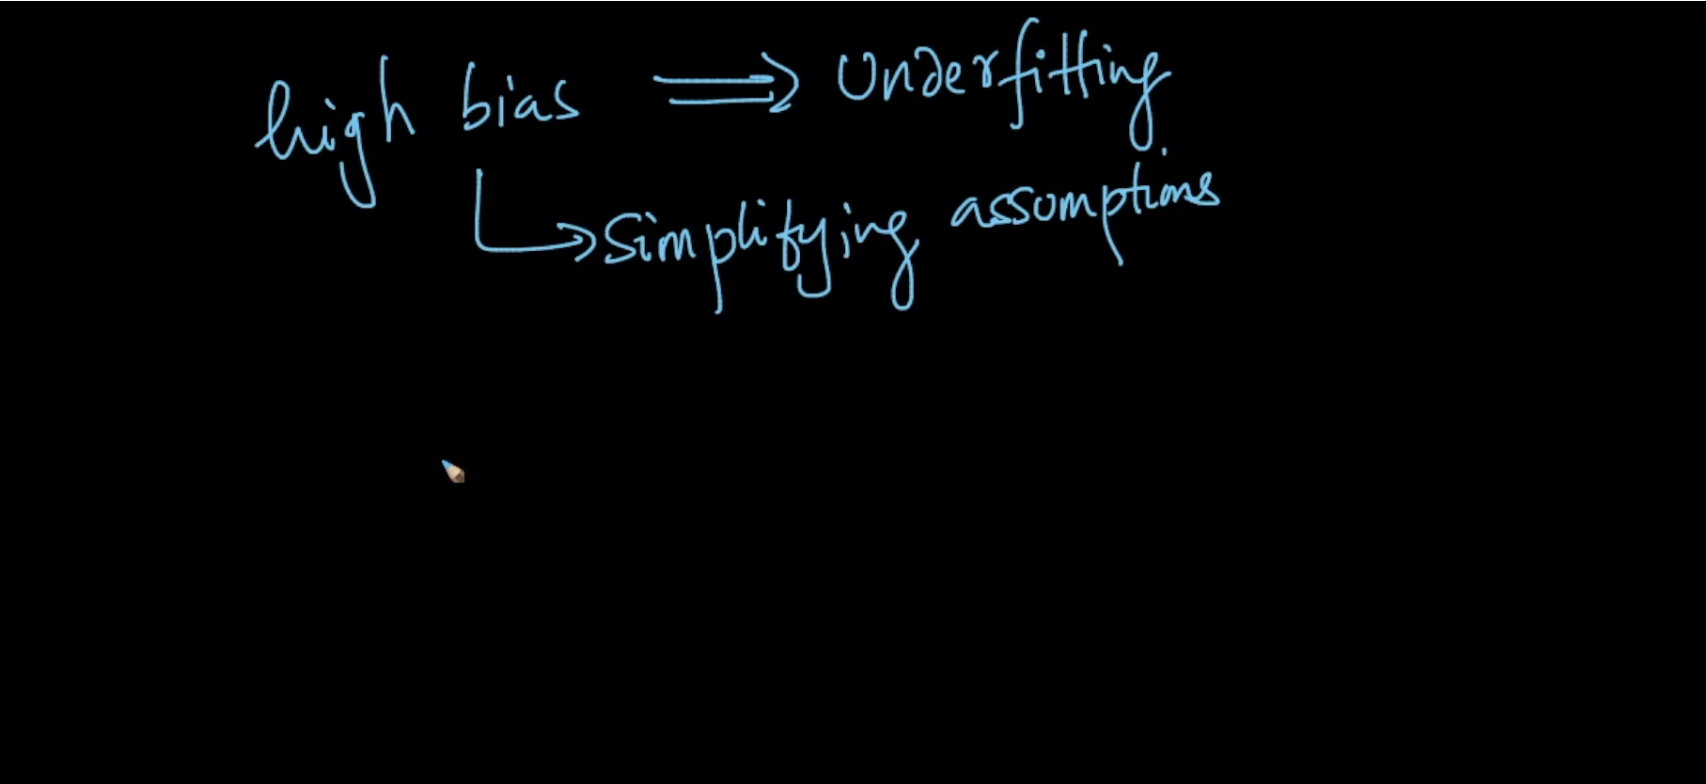 high bias ⟹ Underfitting.
↳ simplifying assumptions